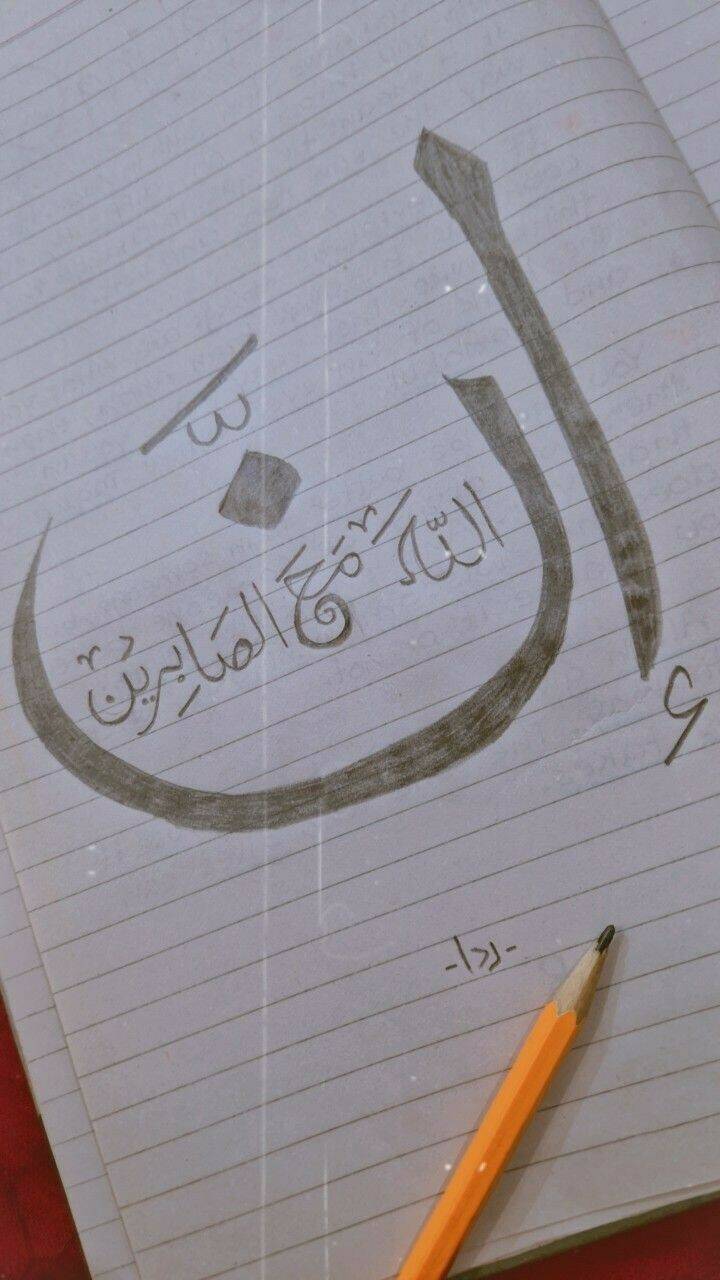 إنَّ اللّٰهَ مَعَ الصَابِرِيْن